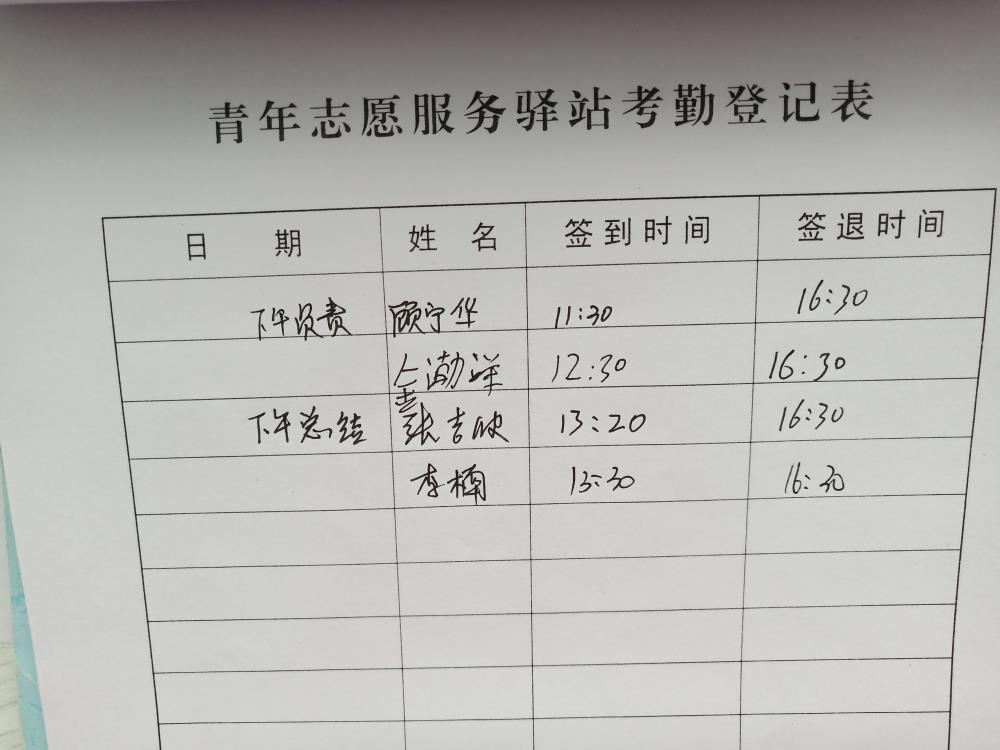 青年志愿服务驿站考勤登记表
日 期 姓 名 签到时间 签退时间
下午负责 顾宁华 11:30 16:30
渤洋 12:30 16:30
下午总结 张吉 13:20 16:30
李楠 13:30 16:30